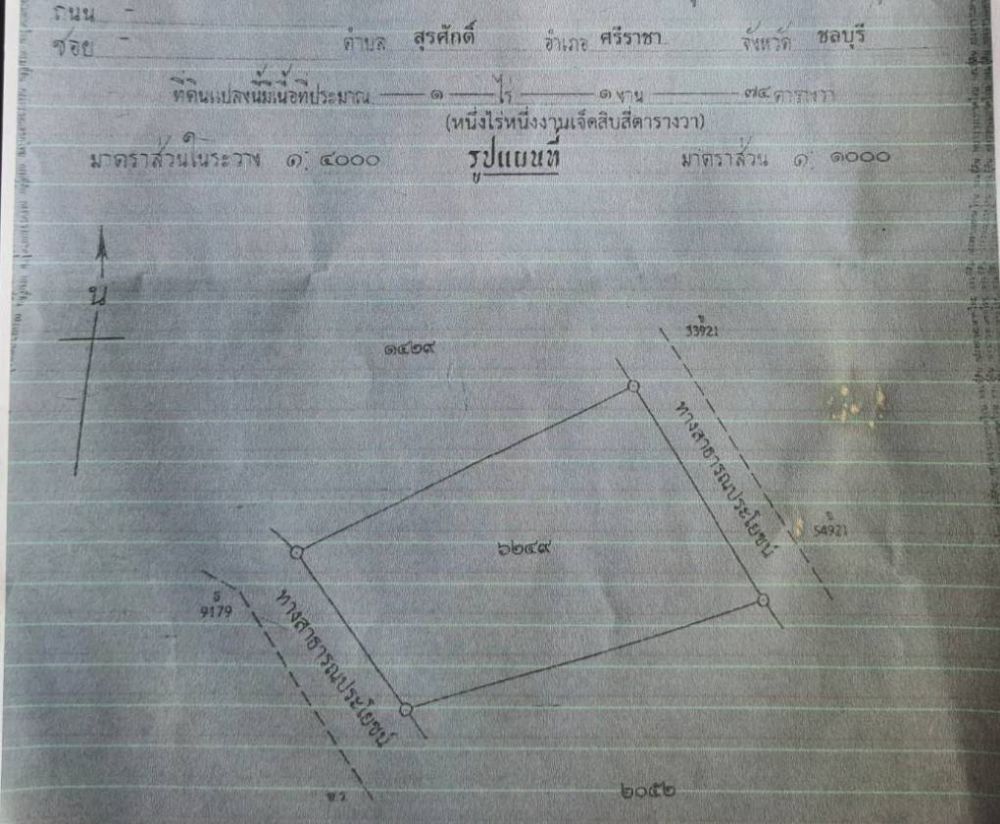 ถนน -
ซอย - ตำบล สุรศักดิ์ อำเภอ ศรีราชา จังหวัด ชลบุรี
ที่ดินแปลงนี้มีเนื้อที่ประมาณ ๑ ไร่ ๑ งาน ๗๔ ตารางวา
(หนึ่งไร่หนึ่งงานเจ็ดสิบสี่ตารางวา)
มาตราส่วนในระวาง ๑: ๔๐๐๐ รูปแผนที่ มาตราส่วน ๑: ๑๐๐๐
น
53921
๑๔๒๙
ทางสาธารณประโยชน์
54921
๖๒๔๙
9179
ทางสาธารณประโยชน์
๒๐๕๒